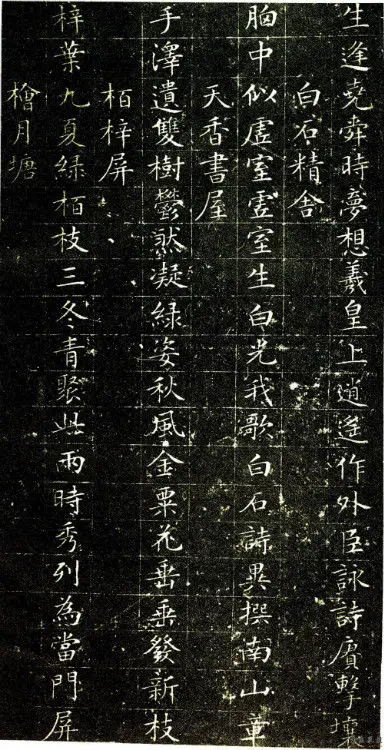 生逢堯舜時夢想羲皇上逍遙作外臣詠詩賡擊壤
白石精舍
胸中似虛室虛室生白光我歌白石詩異撰南山章
天香書屋
手澤遺雙樹鬱然凝綠姿秋風金粟花垂垂發新枝
栢梓屏
梓葉九夏綠栢枝三冬青聚此兩時秀列為當門屏
檜月塘